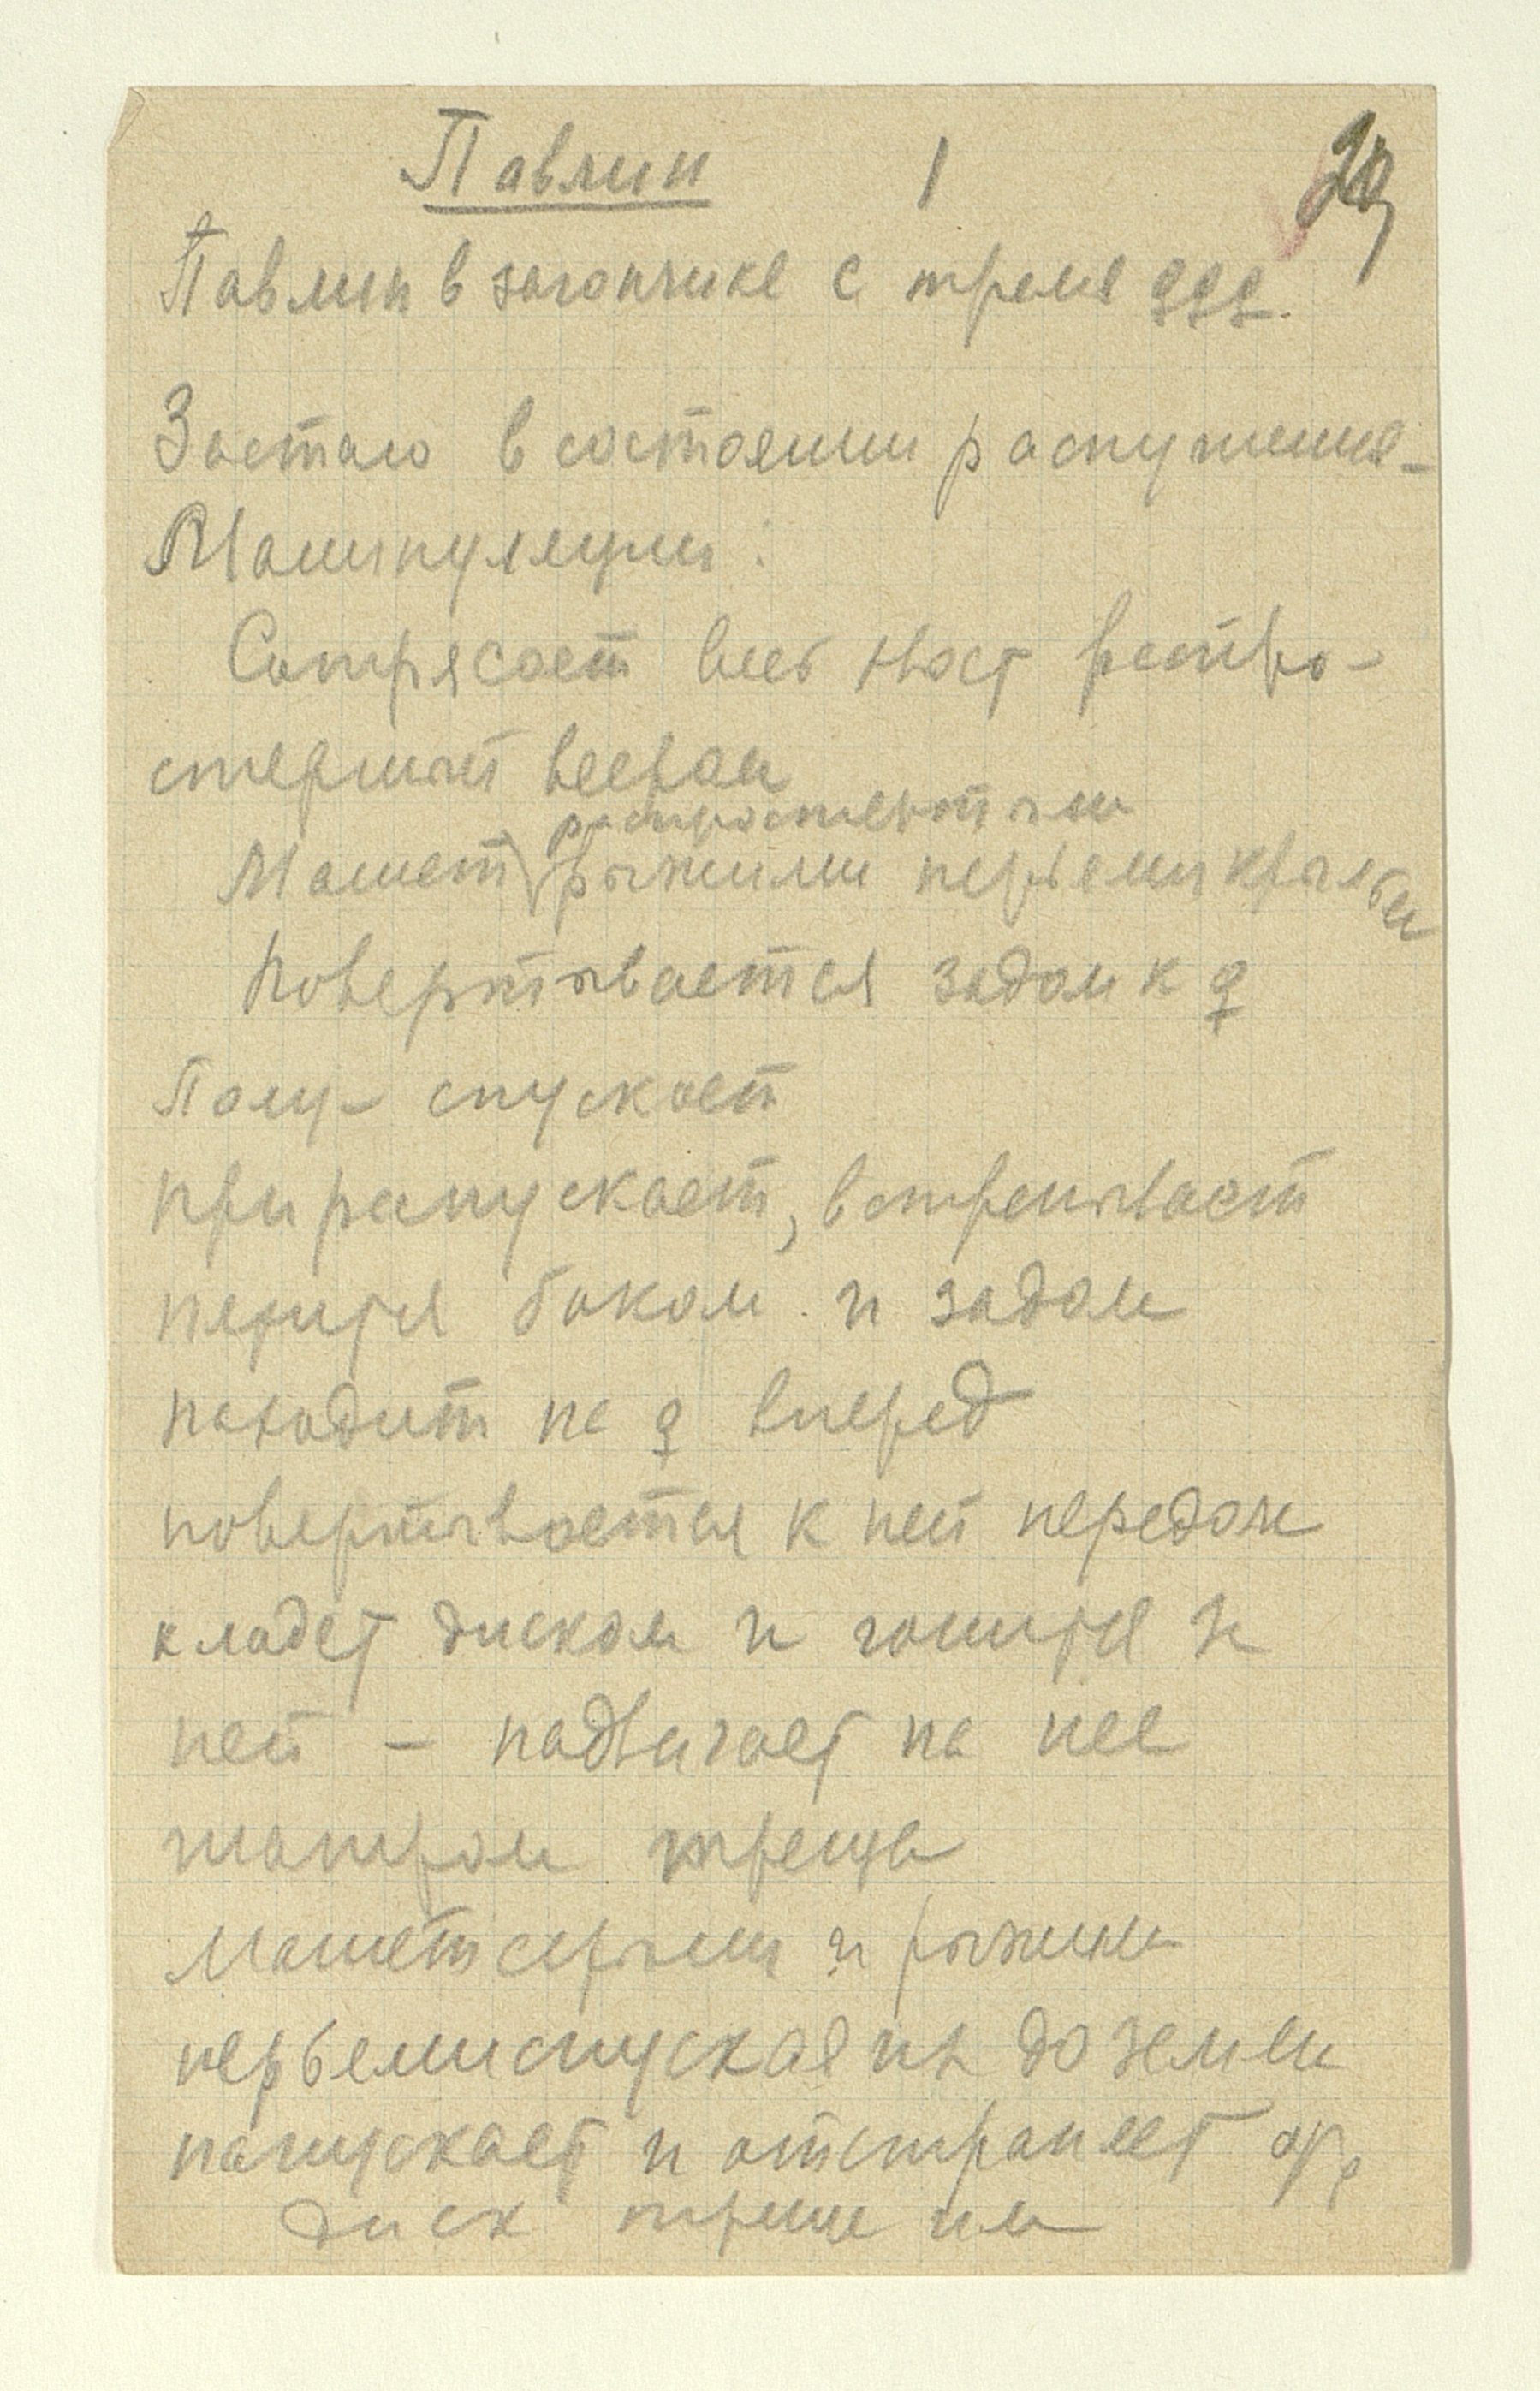 Павлин 1 29
Павлин в загончике с тремя ♀♀♀.
Застаю в состоянии распушения-
Манипуляции:
Сотрясает весь хвост распро-
стертый веером
распростертыми
Машет рыжими перьями крыльев
Повертывается задом к ♀
Полу- спускает
приспускает, встрепывает
пятится боком и задом
находит на ♀ вперед
повертывается к ней передом
кладет диском и гонится за
ней – надвигает на нее
шатром треща
Машет серыми и рыжими
перьями спуская их до земли
напускает и отстраняет от ♀
диск треща им